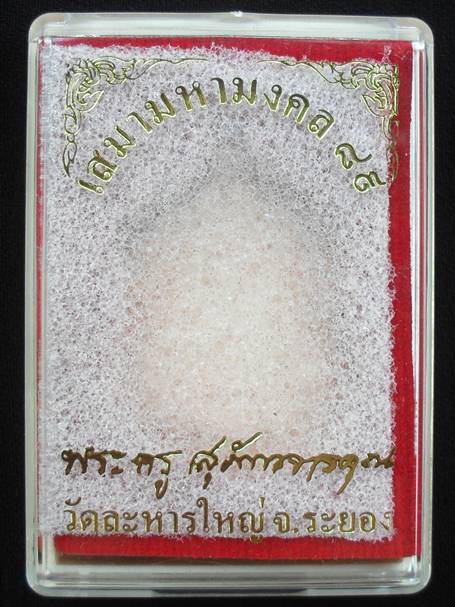 เสมามหามงคล ๘๓
พระครูสุภัทราจารคุณ
วัดละหารใหญ่ จ.ระยอง